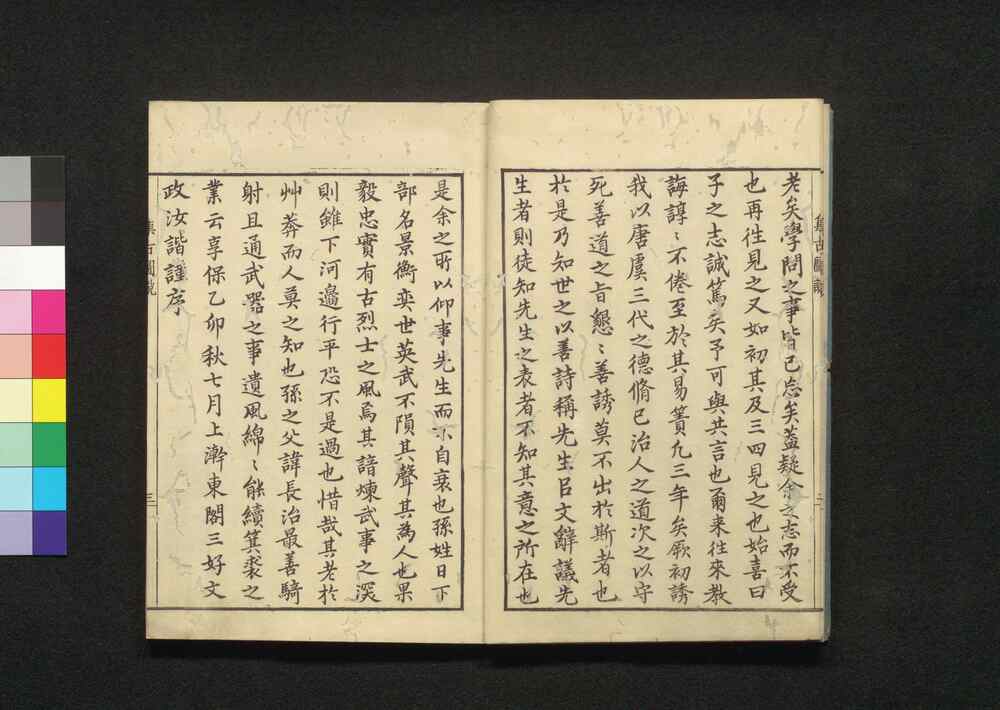 老矣學問之事皆已忘矣蓋疑余之志而不受
也再徃見之又如初其及三四見之也始喜曰
子之志誠篤矣予可與共言也爾来徃來教
誨諄〻不倦至於其易簀凢三年矣厥初誘
我以唐虞三代之德脩已治人之道次之以守
死善道之旨懇〻善誘莫不出於斯者也
於是乃知世之以善詩稱先生㠯文辭議先
生者則徒知先生之表者不知其意之所在也
是余之所以仰事先生而不自衰也孫姓日下
部名景衡奕世英武不隕其聲其為人也果
毅忠實有古烈士之風焉其諳煉武事之深
則雖下河邉行平恐不是過也惜哉其老於
艸莽而人莫之知也孫之父諱長治最善騎
射且通武器之事遺風綿〻能續箕裘之
業云享保乙卯秋七月上澣東閣三好文
政汝諧謹序
集古圖説
二
集古圖説
三